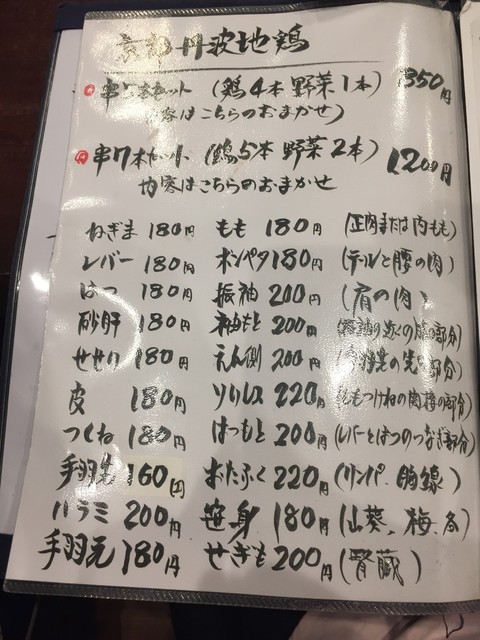 京都丹波地鶏
串5本セット (鶏4本 野菜1本) 850円
(内容はこちらのおまかせ)
串7本セット (鶏5本 野菜2本) 1,200円
内容はこちらのおまかせ
ねぎま 180円 もも 180円 (正肉または内もも)
レバー 180円 ボンペタ 180円 (テールと腰の肉)
はつ 180円 振袖 200円 (肩の肉)
砂肝 180円 袖もと 200円 (振袖の近くの部分)
せせり 180円 えん側 200円 (の先の部分)
皮 180円 ソリレス 220円 (ももつけねの肉の部分)
つくね 180円 はつもと 200円 (レバーとはつのつなぎ部分)
手羽先 160円 おたふく 220円 (リンパ、胸線)
ハラミ 200円 笹身 180円 (山葵、梅、各)
手羽元 180円 せぎも 200円 (腎臓)